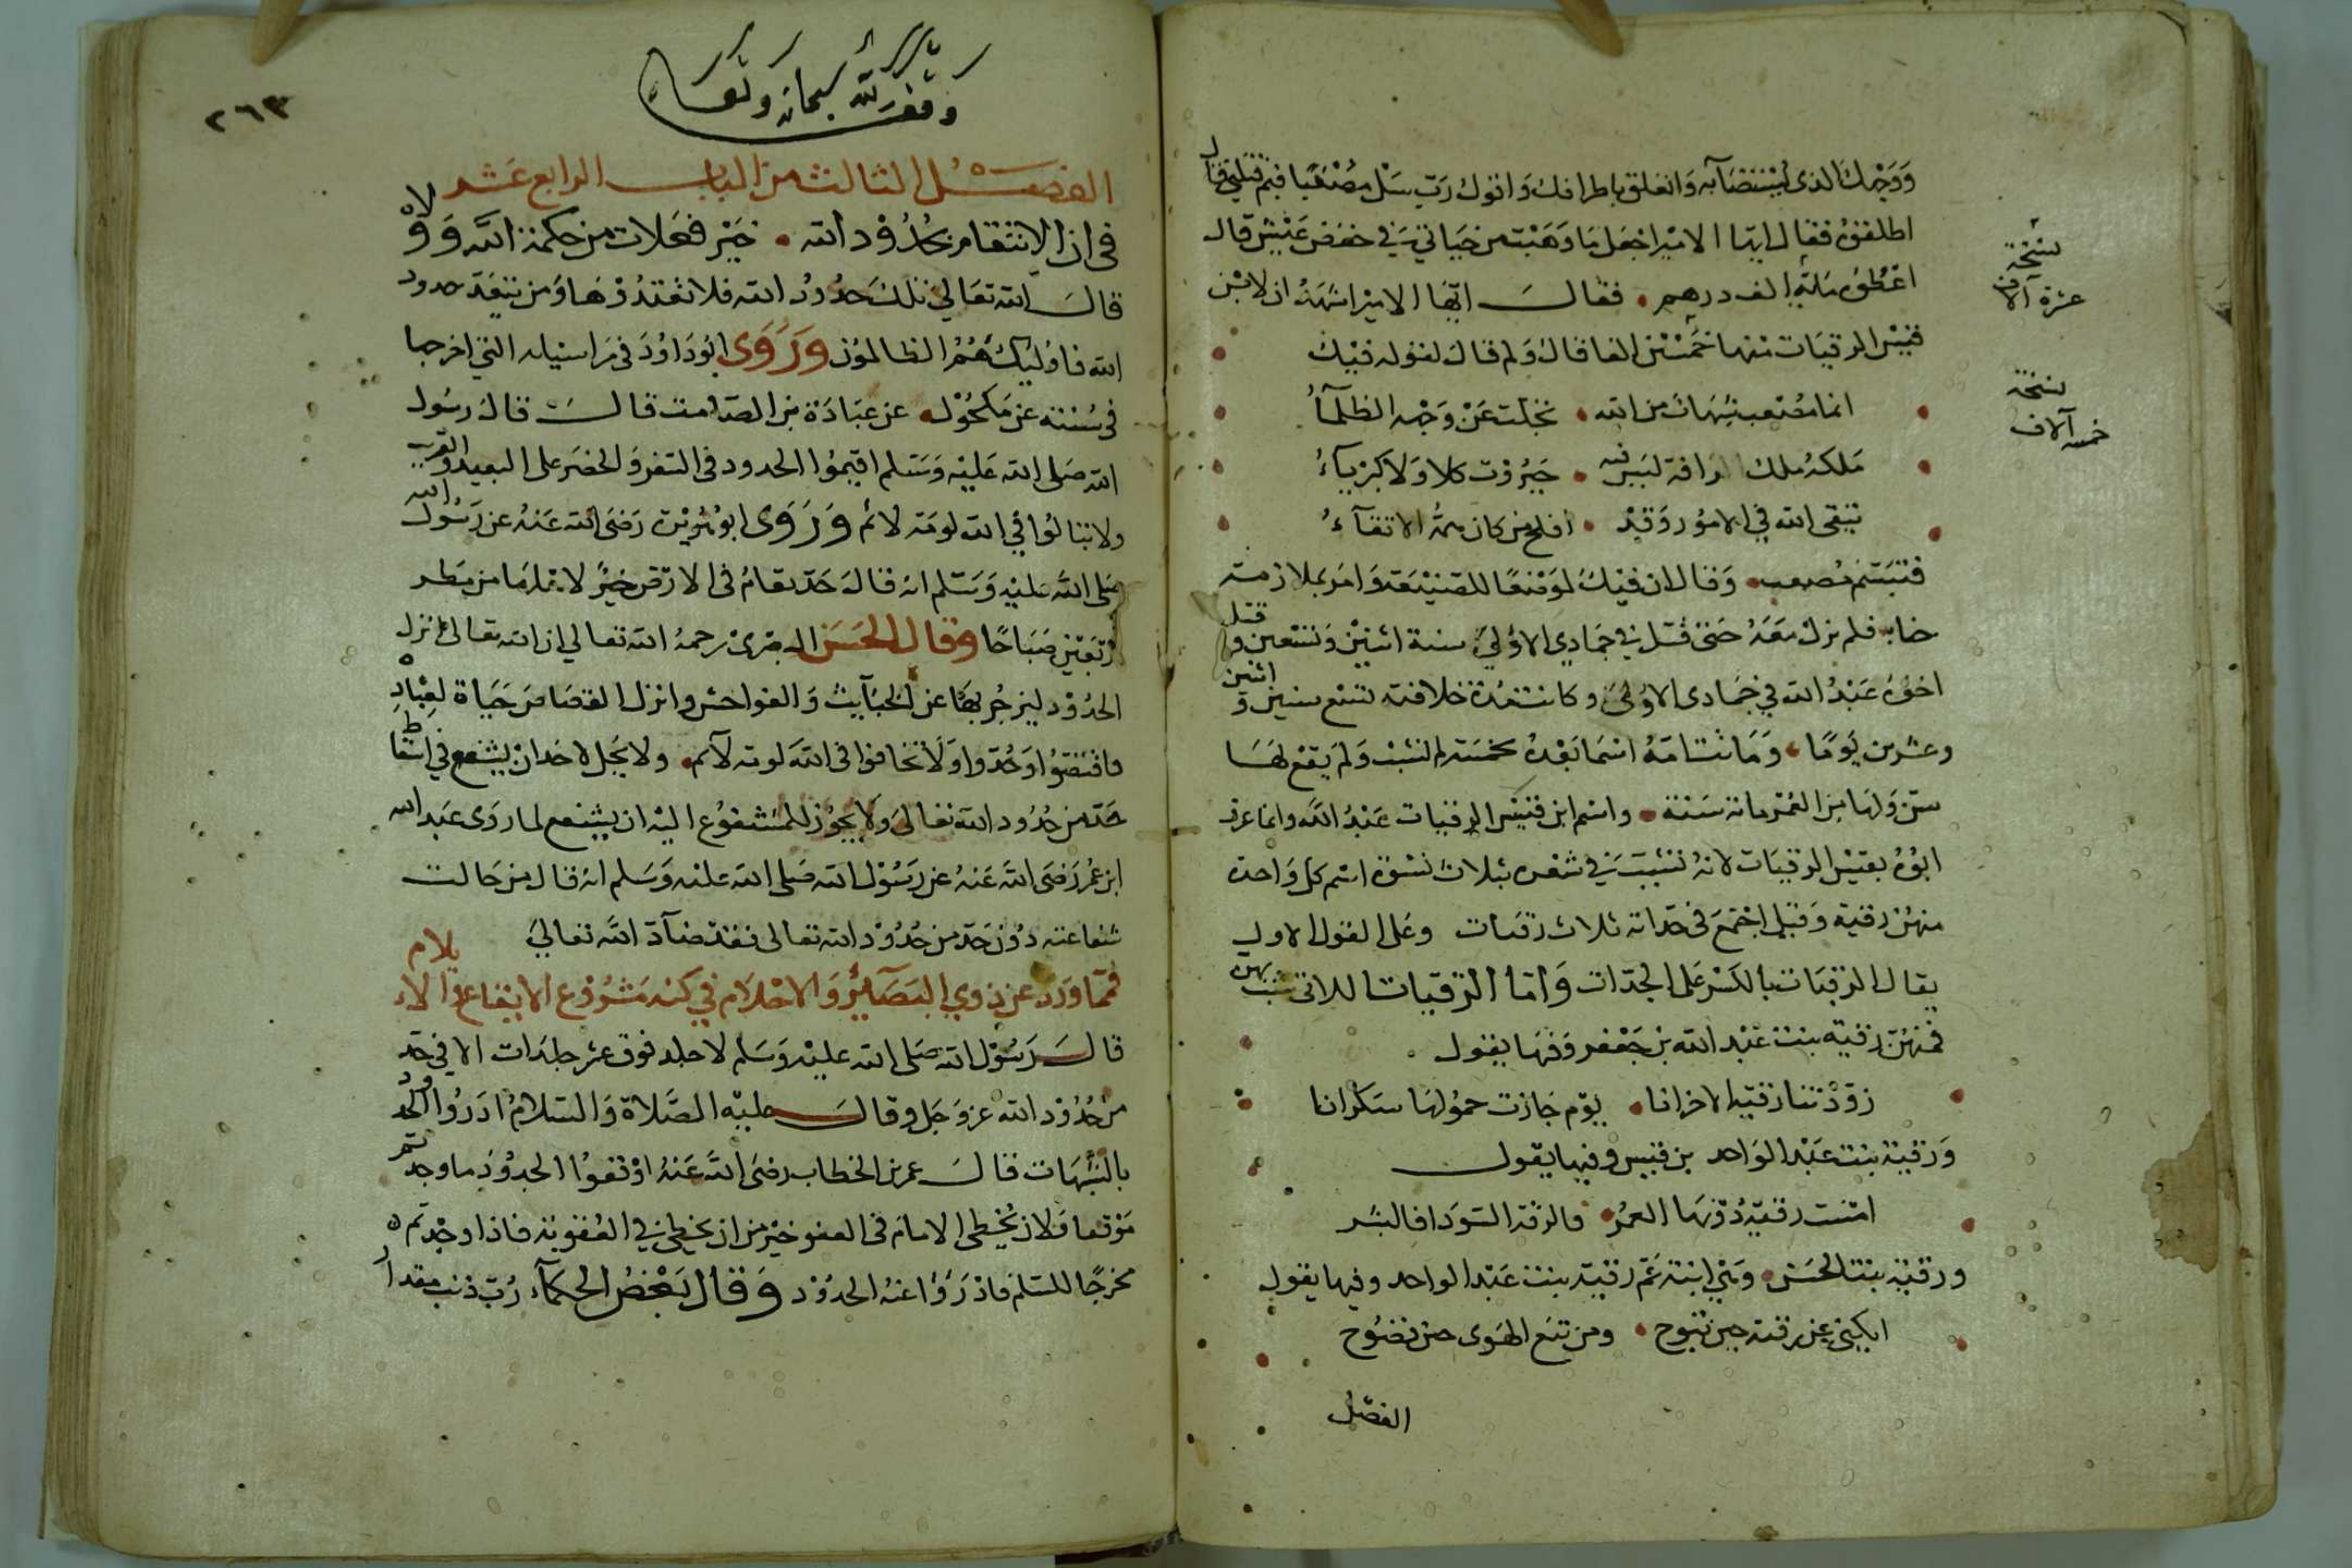 ووجهك الذي يستضآ به واتعلق باطرافك واقول رب سل مصعبا فيم قتلني فقال
اطلقوه فقال ايها الامير اجعل ما وهبت من حياتي في خفض عيش قال
اعطوه مائة الف درهم • فقال ايها الامير اشهد ان لابن
قيس الرقيات منها خمسين الفا قال ولم قال لقوله فيك
انما مصعب شهاب من الله • تجلت عن وجهه الظلمآء
ملكه ملك رافة ليس فيه • جبروت كلا ولا كبريآء
يتقي الله في الامور وقد • افلح من كان همه الاتقآء
فتبسم مصعب • وقال ان فيك لموضعا للصنيعة وامر بملازمته
فلم يزل معه حتى قتل في جمادي الاولي سنة اثنين وسبعين وقتل
اخوه عبد الله في جمادى الاولى وكانت مدة خلافته تسع سنين واثنين
وعشرين يوما •
واسم ابن قيس الرقيات عبد الله وانما عرف
ابوه بقيس الرقيات لانه تشبب في شعره بثلاث نسوة اسم كل واحدة
منهن رقية وقيل اجتمع في جداته ثلاث رقيات وعلى القول الاول
يقال الرقيات بالكسر على الجدات واما الرقيات اللاتي تشبب بهن
فمنهن رقية بنت عبد الله بن جعفر وفيها يقول
زودتنا رقية الاحزانا • يوم جازت حمولها سكرانا
ورقية بنت عبد الواحد بن قيس وفيها يقول
امست رقية دونها الغمر • فالرقة السودا فالبشر
ورقية بنت الحسن • وهي ابنة عم رقية بنت عبد الواحد وفيها يقول
ابكيني عن رقية حين تنوح • ومن تبع الهوى حين تفضوح
الفصل
نسخة
عشرة آلاف
نسخة
خمسة آلاف
وقف لله سبحانه وتعالى
٢٦٣
الفصل الثالث من الباب الرابع عشر
في ان الانتقام بحدود الله • خير فعلات من حكمه الله وولاه
قال الله تعالى تلك حدود الله فلا تعتدوها ومن يتعد حدود
الله فاوليك هم الظالمون وروى ابو داود في مراسيله التي اخرجها
في سننه عن مكحول • عن عبادة بن الصامت قال قال رسول
الله صلى الله عليه وسلم اقيموا الحدود في السفر والحضر على البعيد والقريب
ولا تبالوا في الله لومة لائم وروى ابو هريرة رضى الله عنه عن رسول الله
صلى الله عليه وسلم انه قال حد يقام في الارض خير لاهلها من مطر
اربعين صباحا وقال الحسن البصرى رحمه الله تعالي ان الله تعالى انزل
الحدود ليزجر بها عن الخبآيث والفواحش وانزل القصاص حياة لعباده
فاقتصوا وحدوا ولا تخافوا في الله لومة لآئم • ولا يحل لاحد ان يشفع في اسقاط
حد من حدود الله تعالى ولا يجوز للمشفوع اليه ان يشفع لما روى عبد الله
ابن عمر رضى الله عنه عن رسول الله صلى الله عليه وسلم انه قال من حالت
شفاعته دون حد من حدود الله تعالى فقد ضآد الله تعالي
فمما ورد عن ذوي البصآئر والاحلام في كنه مشروع الايقاع والايلام
قال رسول الله صلى الله عليه وسلم لا جلد فوق عشر جلدات الا في حد
من حدود الله عز وجل وقال عليه الصلاة والسلام ادروا الحدود
بالشبهات قال عمر بن الخطاب رضى الله عنه اوقفوا الحدود ما وجدتم
موقعا فلان يخطى الامام في العفو خير من ان يخطي في العقوبة فاذا وجدتم
مخرجا للمسلم فادرؤا عنه الحدود وقال بعض الحكمآء رب ذنب مقدار